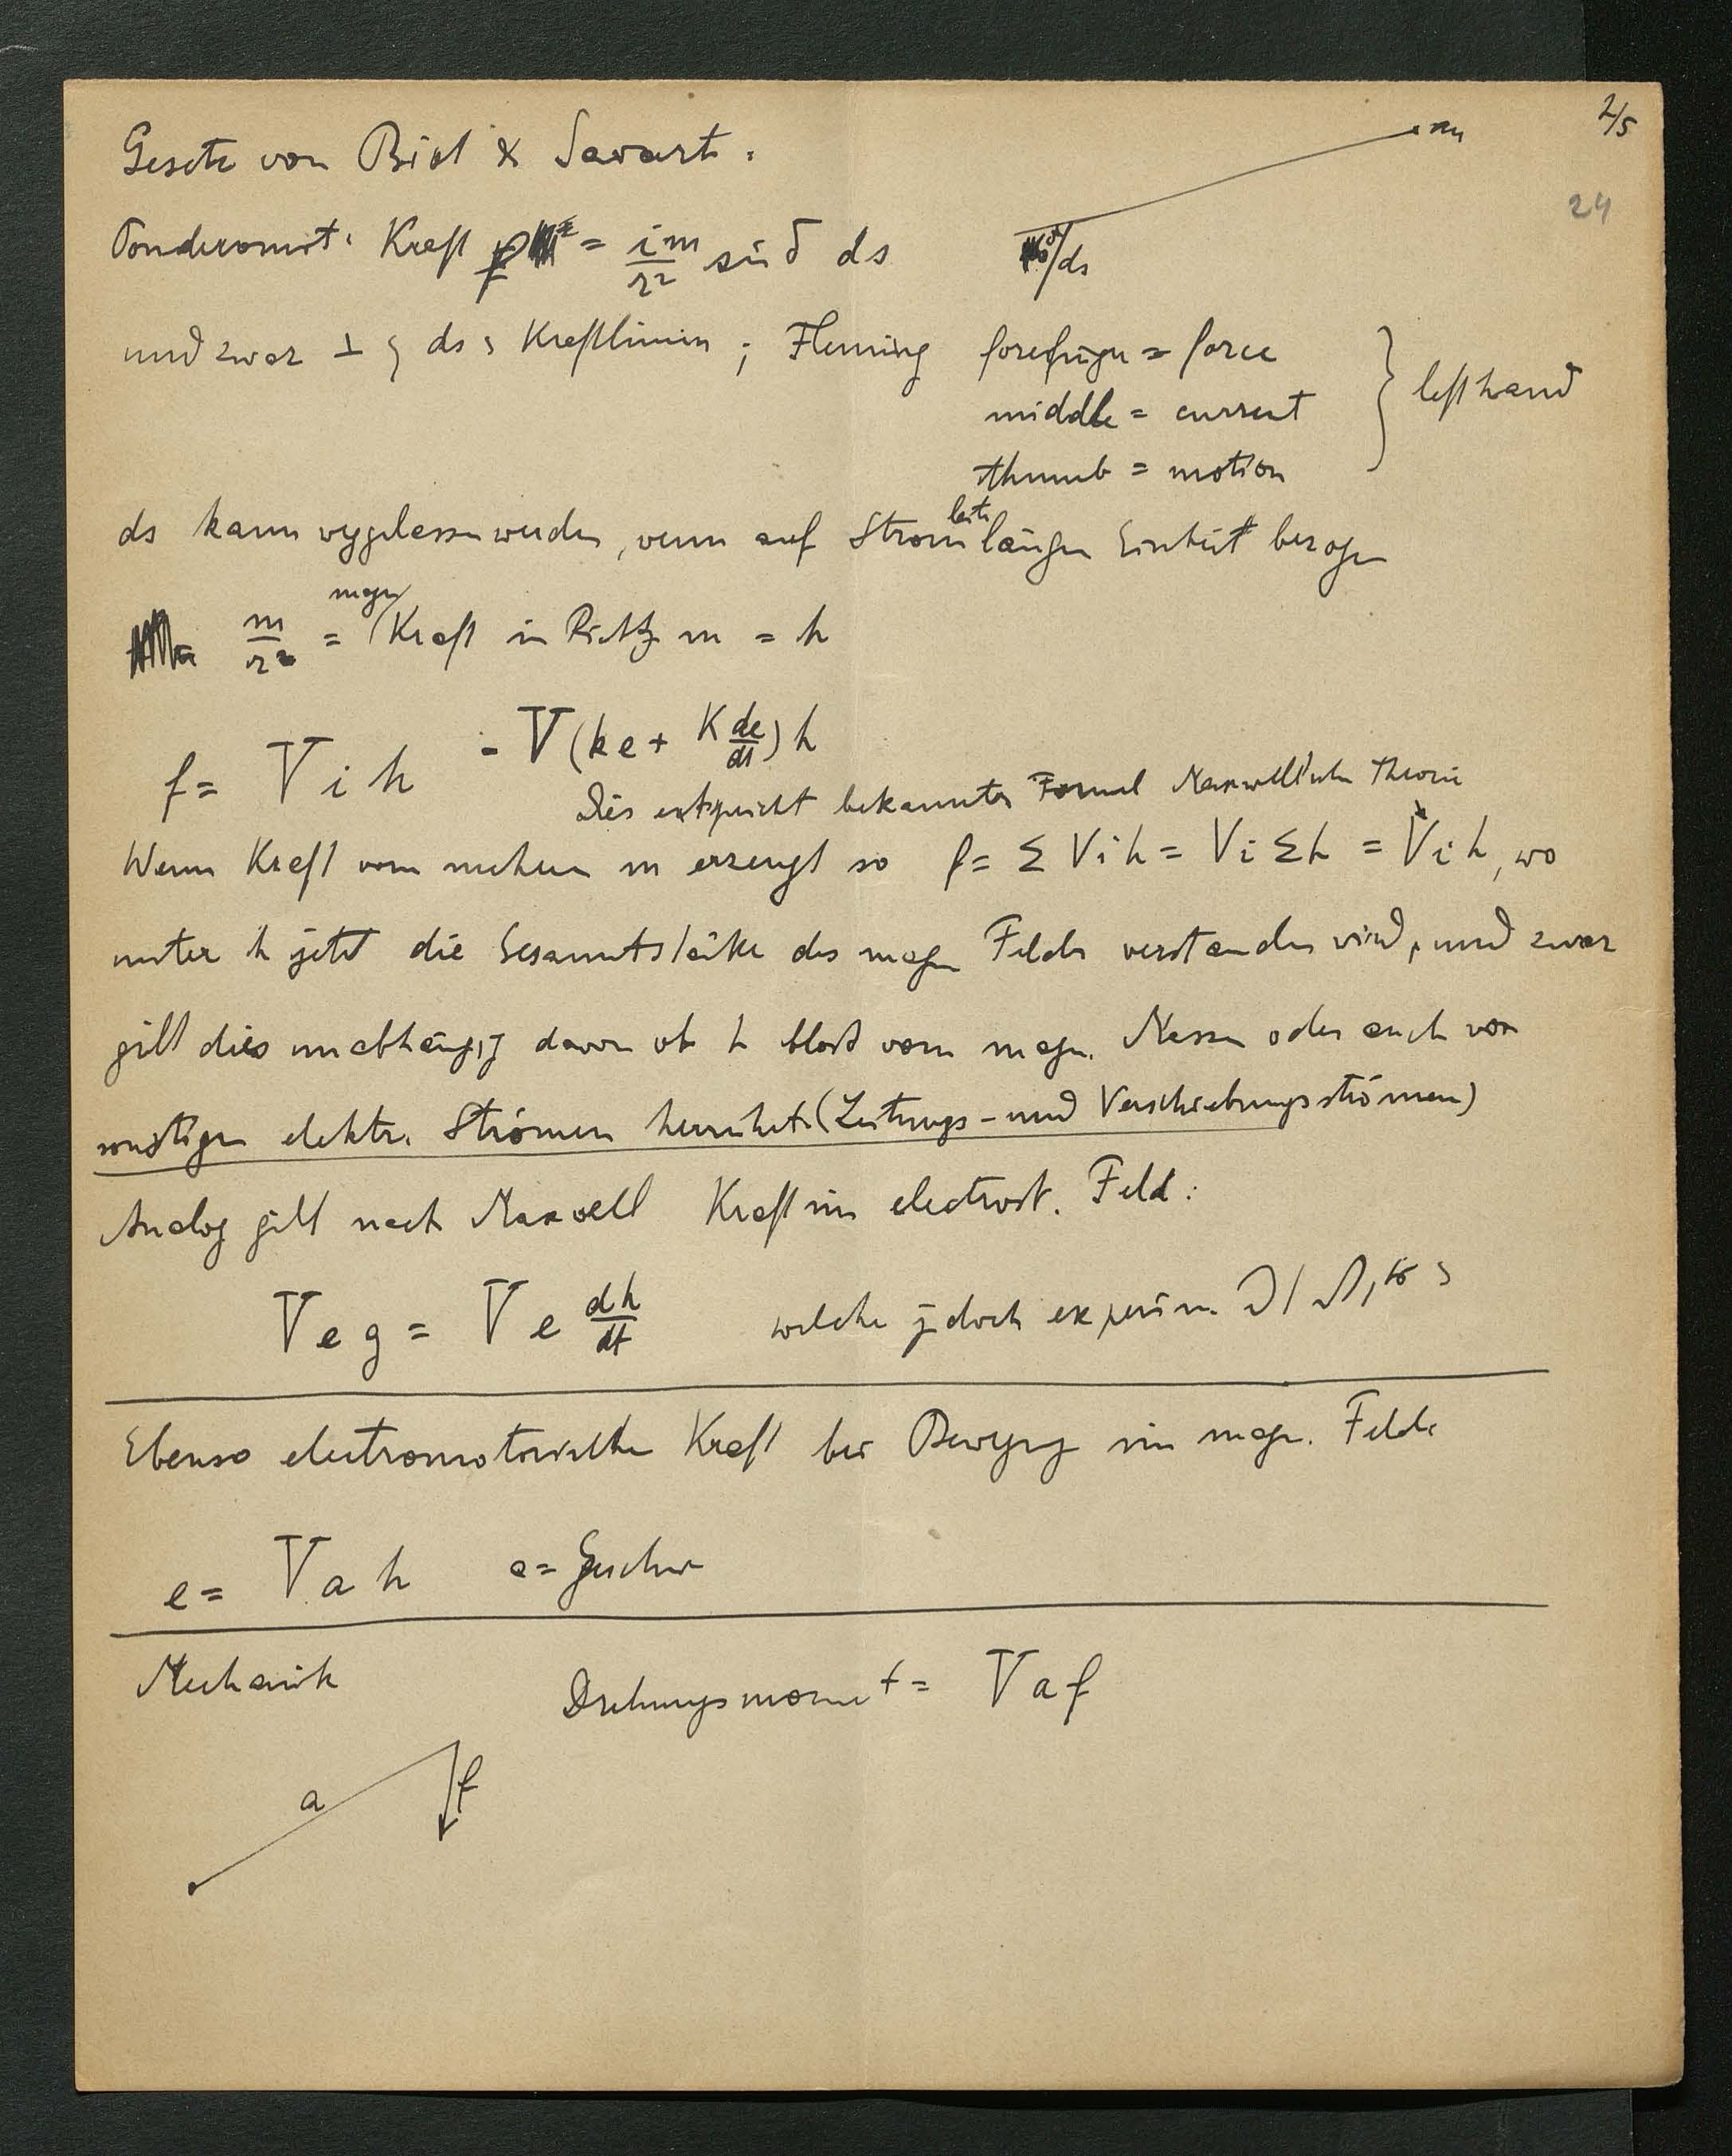 2/5
24
Gesetz von Biot & Savart:
m
Ponderomot. Kraft f = i m / r² sin δ ds
δ / ds
und zwar ⊥ ds Kraftlinien ; Fleming forefinger = force
middle = current } left hand
thumb = motion
ds kann weggelassen werden, wenn auf Stromleiterlängen Einheit bezogen
m / r² = magn Kraft in Richtg m = h
f = V i h = V (k e + K de/dt) h
Dies entspricht bekannter Formel Maxwell'schen Theorie
Wenn Kraft von mehren m erzeugt so f = Σ V i h = V i Σ h = V i h, wo
unter h jetzt die Gesammtstärke des magn Feldes verstanden wird, und zwar
gilt dies unabhängig davon ob h bloss von magn. Massen oder auch von
sonstigen elektr. Strömen herrührt (Leitungs- und Verschiebungsströmen)
Analog gilt nach Maxwell Kraft im electrost. Feld:
V e g = V e dh/dt welche jedoch experim.
Ebenso electromotorische Kraft bei Bewegung im magn. Felde
e = V a h a = Geschw
Mechanik Drehungsmoment = V a f
a f